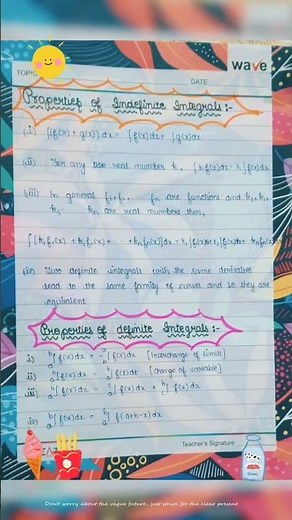 wave
TOPIC
DATE
Properties of Indefinite Integrals :-
(i) ∫(f(x) + g(x)) dx = ∫f(x)dx + ∫g(x)dx
(ii) For any real number k, ∫k f(x)dx = k∫f(x)dx
(iii) In general f₁, f₂, fn are functions and k₁, k₂,
kn are real numbers then,
(iv) Two definite integrals with the same derivative
lead to the same family of curves and so they are
equivalent
Properties of definite Integrals :-
i) [Interchange of limits]
ii) ∫f(x)dx = ∫f(t)dt [change of variable]
iii) ∫f(x)dx = ∫f(x)dx + ∫f(x)dx
iv) ∫f(x)dx = ∫f(a+b-x)dx
Teacher's Signature
Don't worry about the vague future, just strive for the clear present